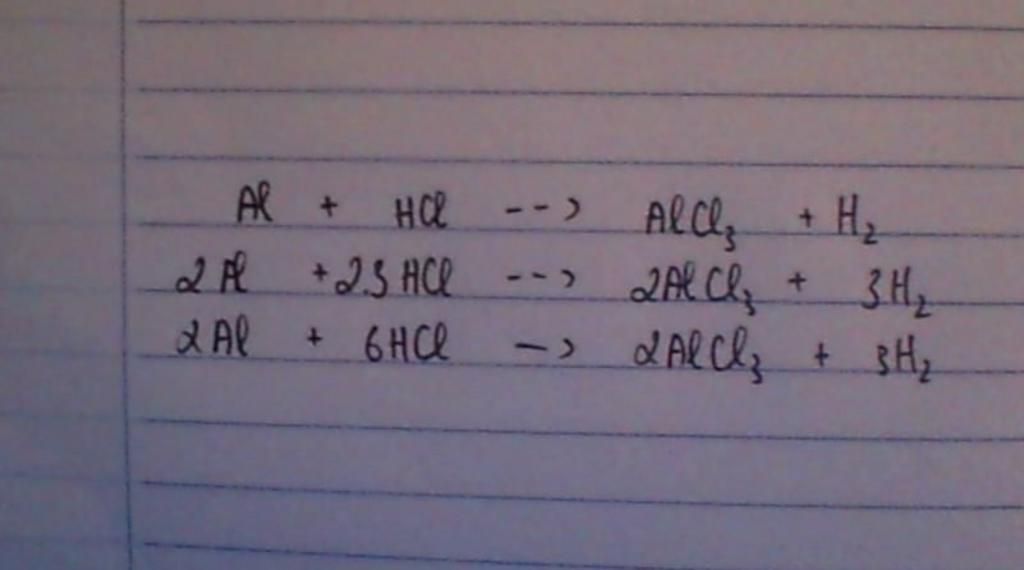 Al + HCl --> AlCl₃ + H₂
2Al + 2.3HCl --> 2AlCl₃ + 3H₂
2Al + 6HCl -> 2AlCl₃ + 3H₂